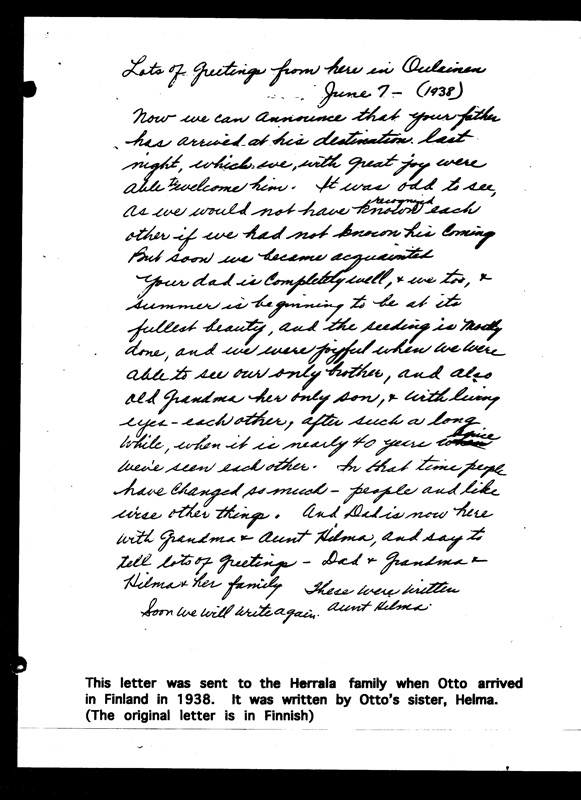 Lots of Greetings from here in Oulainen
June 7 - (1938)
Now we can announce that your father
has arrived at his destination last
night, which we, with great joy were
able to welcome him. It was odd to see,
as we would not have known recognized each
other if we had not known his coming
But soon we became acquainted
Your dad is completely well, & we too, &
summer is beginning to be at its
fullest beauty, and the seeding is mostly
done, and we were joyful when we were
able to see our only brother, and also
old Grandma her only son, & with living
eyes - each other, after such a long
while, when it is nearly 40 years when since
weve seen each other. In that time people
have changed so much - people and like
wise other things. And Dad is now here
with Grandma & Aunt Hilma, and say to
tell lots of greetings - Dad & Grandma &
Hilma & her family These were written
Soon we will write again. Aunt Hilma.
This letter was sent to the Herrala family when Otto arrived
in Finland in 1938. It was written by Otto's sister, Helma.
(The original letter is in Finnish)